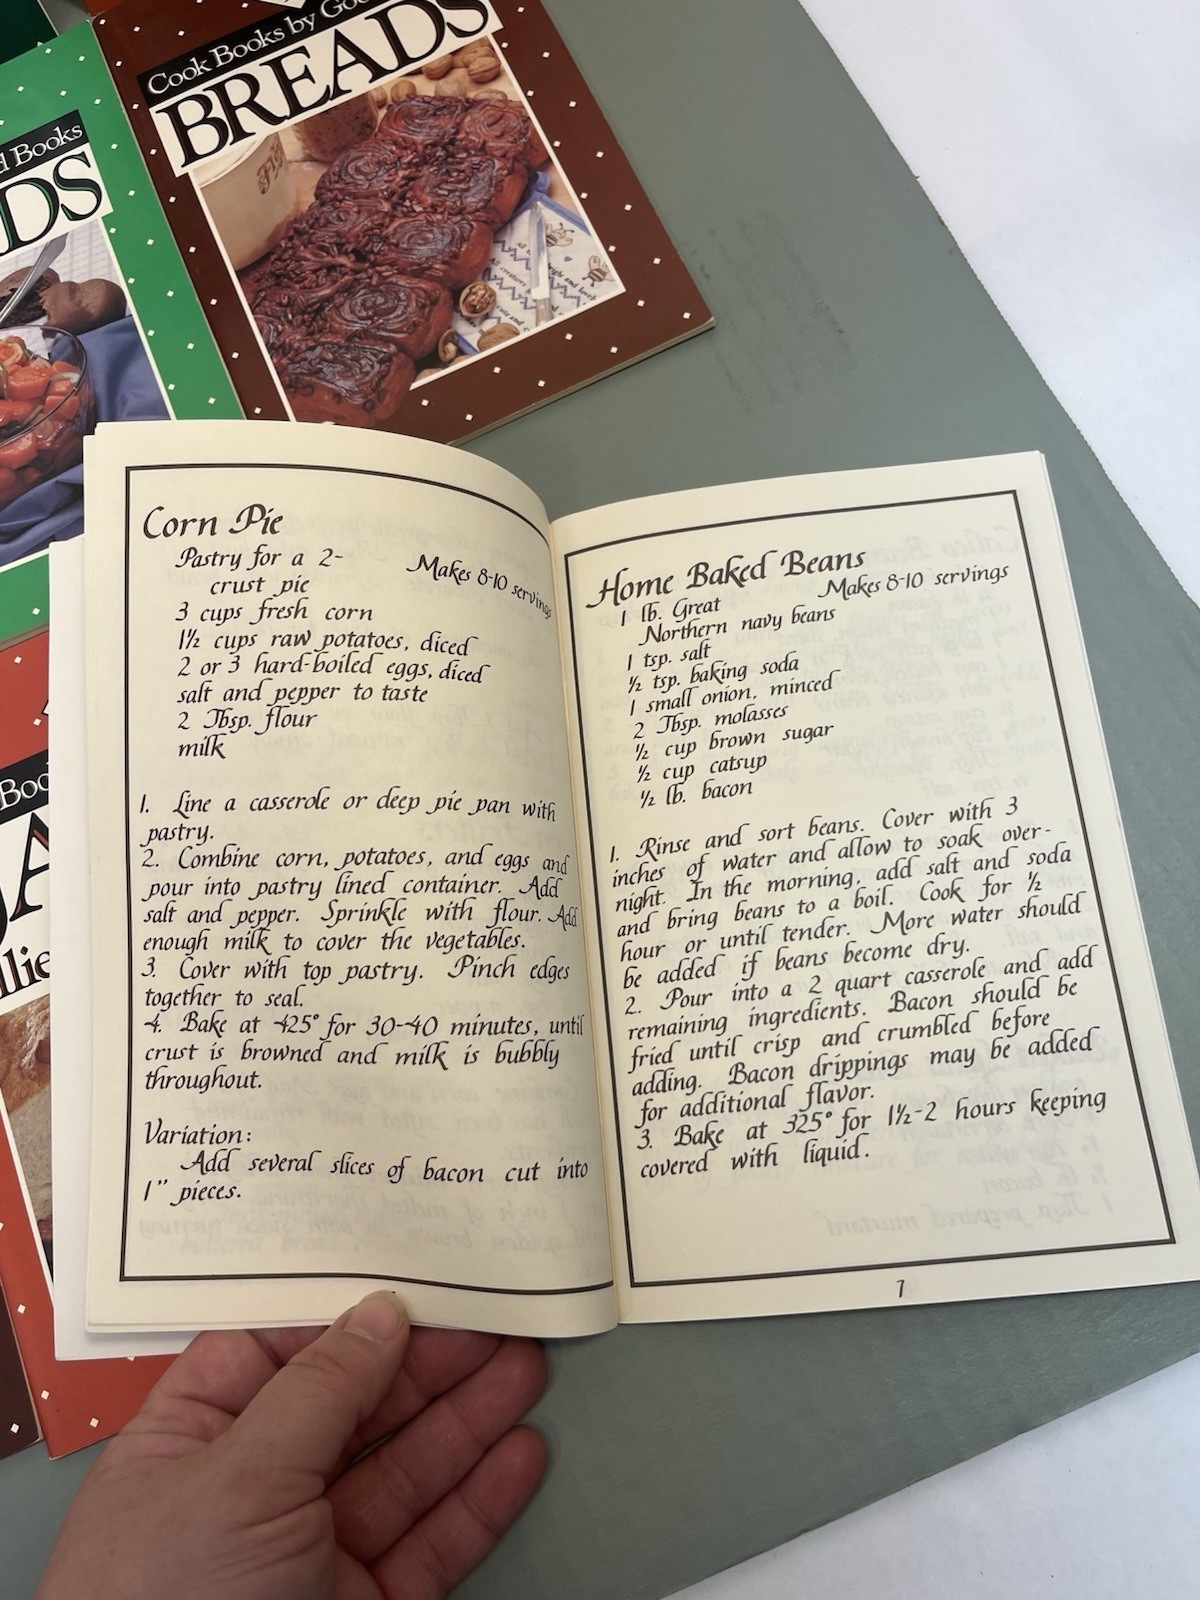 Cook Books by Good
BREADS
d Books
DS
Corn Pie
Makes 8-10 servings
Pastry for a 2-
crust pie
3 cups fresh corn
1½ cups raw potatoes, diced
2 or 3 hard-boiled eggs, diced
salt and pepper to taste
2 Tbsp. flour
milk
1. Line a casserole or deep pie pan with
pastry.
2. Combine corn, potatoes, and eggs and
pour into pastry lined container. Add
salt and pepper. Sprinkle with flour. Add
enough milk to cover the vegetables.
3. Cover with top pastry. Pinch edges
together to seal.
4. Bake at 425° for 30-40 minutes, until
crust is browned and milk is bubbly
throughout.
Variation:
Add several slices of bacon cut into
1" pieces.
Home Baked Beans
Makes 8-10 servings
1 lb. Great
Northern navy beans
1 tsp. salt
½ tsp. baking soda
1 small onion, minced
2 Tbsp. molasses
½ cup brown sugar
½ cup catsup
½ lb. bacon
1. Rinse and sort beans. Cover with 3
inches of water and allow to soak over-
night. In the morning, add salt and soda
and bring beans to a boil. Cook for ½
hour or until tender. More water should
be added if beans become dry.
2. Pour into a 2 quart casserole and add
remaining ingredients. Bacon should be
fried until crisp and crumbled before
adding. Bacon drippings may be added
for additional flavor.
3. Bake at 325° for 1½-2 hours keeping
covered with liquid.
7